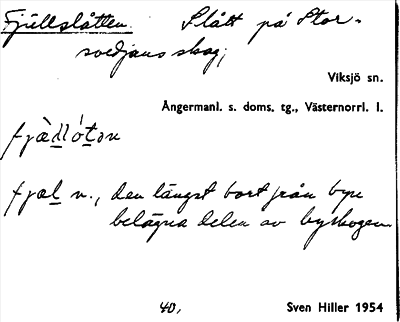 Fjällslåtten. Slått på Stor-
svedjans skog;
Viksjö sn.
Ångermanl. s. doms. tg., Västernorrl. l.
fjæ̀dló́tɔn
fjæl n., den längst bort från byn
belägna delen av byskogen.
40. Sven Hiller 1954